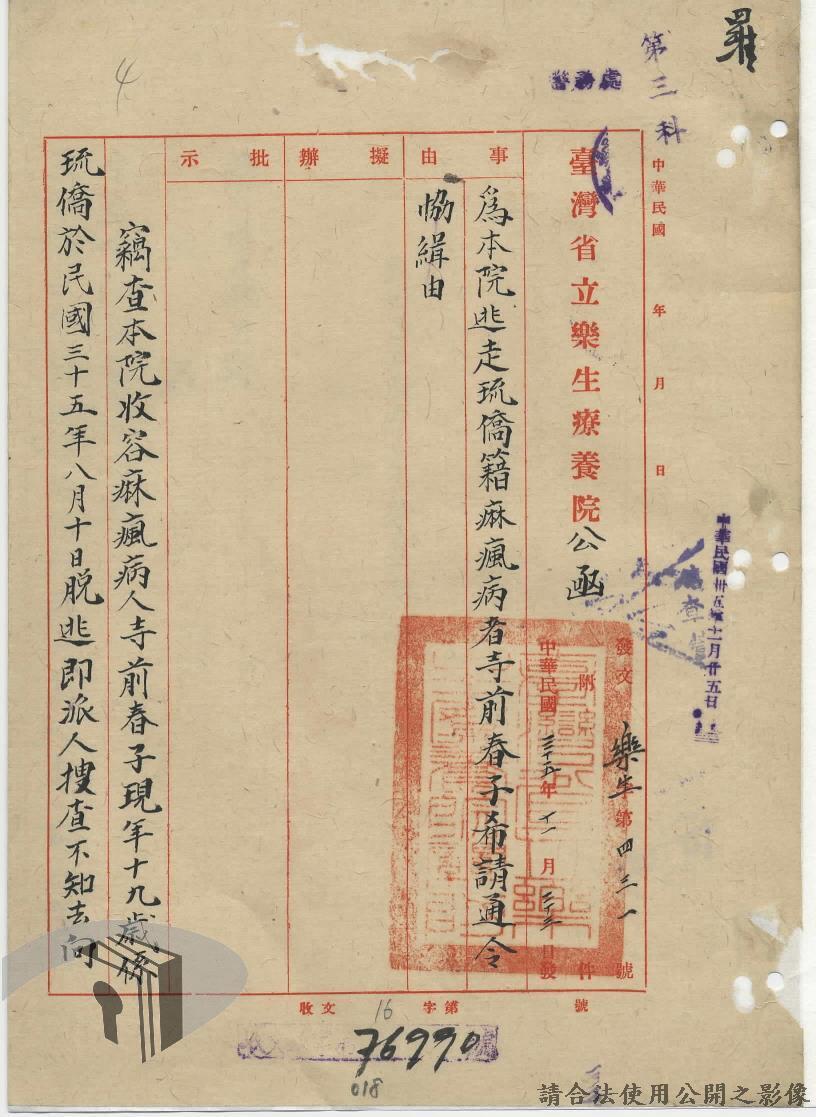 羅
第三科
警務處
中華民國 年 月 日
中華民國卅五年十一月廿五日
臺灣省立樂生療養院公函
發文 樂生 第四三一號
附 件
中華民國三十五年十一月 日發
號
事由
為本院逃走琉僑籍痳瘋病者寺前春子希請通令
恊緝由
擬辦
批示
竊查本院收容痳瘋病人寺前春子現年十九歲係
琉僑於民國三十五年八月十日脫逃即派人搜查不知去向
收文 字第
16
76990
018
4
請合法使用公開之影像